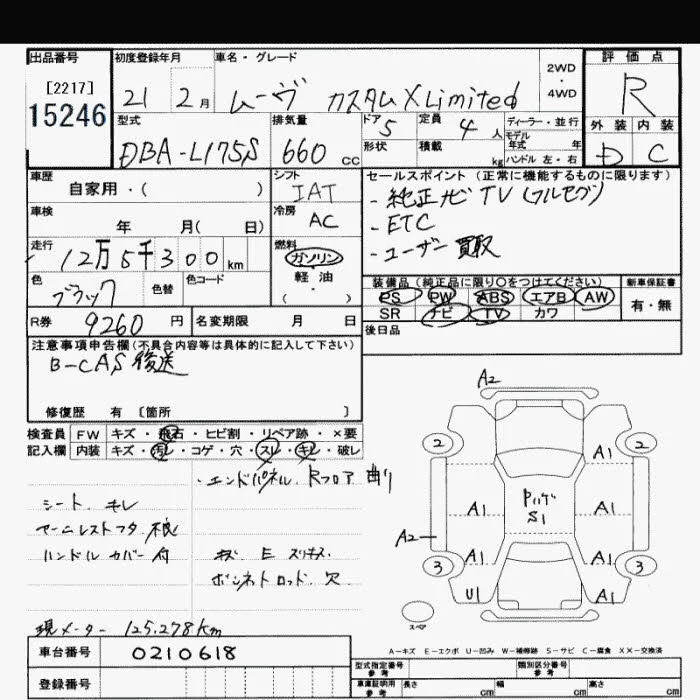 出品番号
[2217]
15246
初度登録年月
21 2月
車名・グレード
ムーヴ カスタム X Limited
2WD
・
4WD
評価点
R
型式
DBA-L175S
排気量
660 cc
ドア 5
形状
定員 4人
積載 kg
ディーラー・並行
モデル年式 年
ハンドル 左・右
外装 内装
D C
車歴
自家用・( )
シフト
IAT
セールスポイント (正常に機能するものに限ります)
- 純正ナビ TV (フルセグ)
- ETC
- ユーザー買取
車検
年 月( 日)
冷房
AC
走行
12万5千300km
燃料
ガソリン
軽油
( ・ )
色
ブラック
色替
色コード
装備品 (純正品に限り〇をつけてください)
PS PW ABS エアB AW
SR ナビ TV カワ
新車保証書
有・無
R券
9260 円
名変期限 月 日
後日品
注意事項申告欄(不具合内容等は具体的に記入して下さい)
B-CAS 後送
修復歴 有 [箇所 ]
検査員 FW キズ・飛石・ヒビ割・リペア跡・×要
記入欄 内装 キズ・汚レ・コゲ・穴・スレ・キレ・破レ
・エンドパネル. Rフロア 曲り
シート. キレ
アームレストフタ 不良
ハンドルカバー付
キズ. E スリキズ.
ボンネトロッド. 穴
現メーター 125,278km
A2
2 2
A1
A1 A1
S1
A2
A1 A1
3 3
U1 A1
スペア
A-キズ E-エクボ U-凹み W-補修跡 S-サビ C-腐食 XX-交換済
車台番号
0210618
登録番号
型式指定番号 参考
類別区分番号 参考
車庫証明用 参考
長さ cm
幅 cm
高さ cm